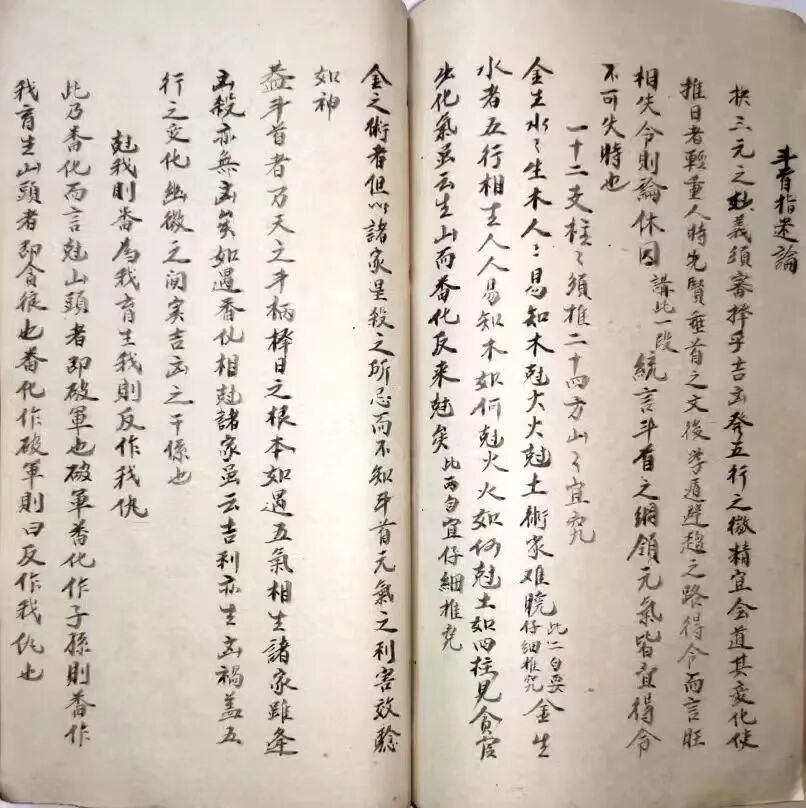 斗首指迷論
扶三元之尅義須審擇乎吉凶發五行之微精宜会道其变化使
推日者輕重人時先賢垂首之文後学遁避趋之路得令而言旺
相失令則論休囚 講此一段 統言斗首之綱領元氣皆宜得令
不可失時也
一十二支柱〻須推二十四方山〻宜究
金生水〻生木人〻易知木尅大火尅土術家难曉 此二句要仔細推究 金生
水者五行相生人人易知木如何尅火火如何尅土如四柱見貪官
生化氣虽云生山而畨化反来尅矣 比两句宜仔細推究
金之術者但以諸家星殺之所忌而不知斗首元氣之利害效驗
如神
葢斗首者乃天之斗柄择日之根本如遇五氣相生諸家雖逢
凶殺亦無凶矣如遇畨仇相尅諸家虽云吉利亦生凶禍盖五
行之变化幽微之间实吉凶之干係也
尅我則畨為我育生我則反作我仇
此乃畨化而言尅山頭者即破軍也破軍畨化作子孫則畨作
我育生山頭者即貪狼也畨化作破軍則曰反作我仇也